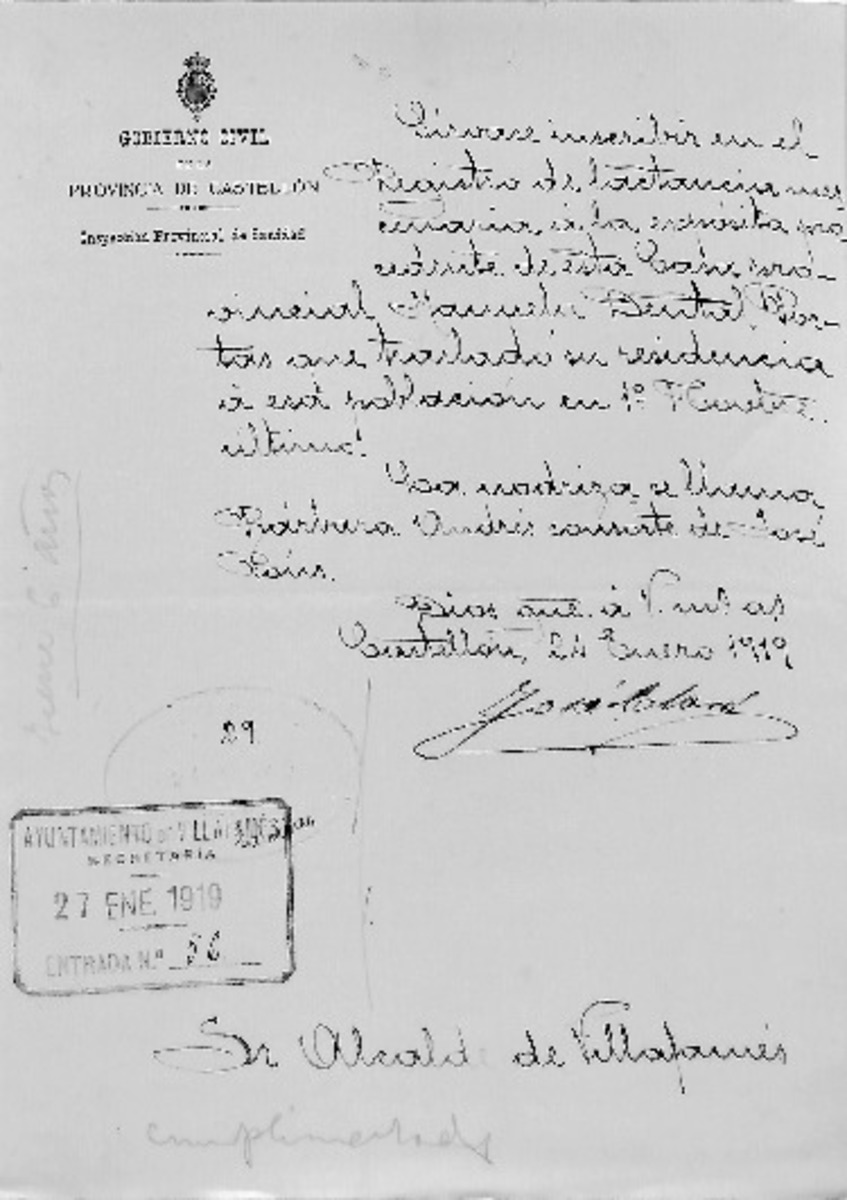 GOBIERNO CIVIL
DE LA
PROVINCIA DE CASTELLÓN
Inspección Provincial de Sanidad
Sírvase inscribir en el
Registro de lactancia mer-
cenaria á la expósita pro-
cedente de esta Casa pro-
vincial Manuela
tas que trasladó su residencia
á esa población en 1º
último.
La nodriza se llama
Bárbara Andrés consorte de José
Dios gue á V. ms as
Castellón, 24 Enero 1919
José
29
AYUNTAMIENTO DE VILLAFAMÉS
SECRETARÍA
27 ENE 1919
ENTRADA N.º 56
Sr Alcalde de Villafamés
cumplimentado